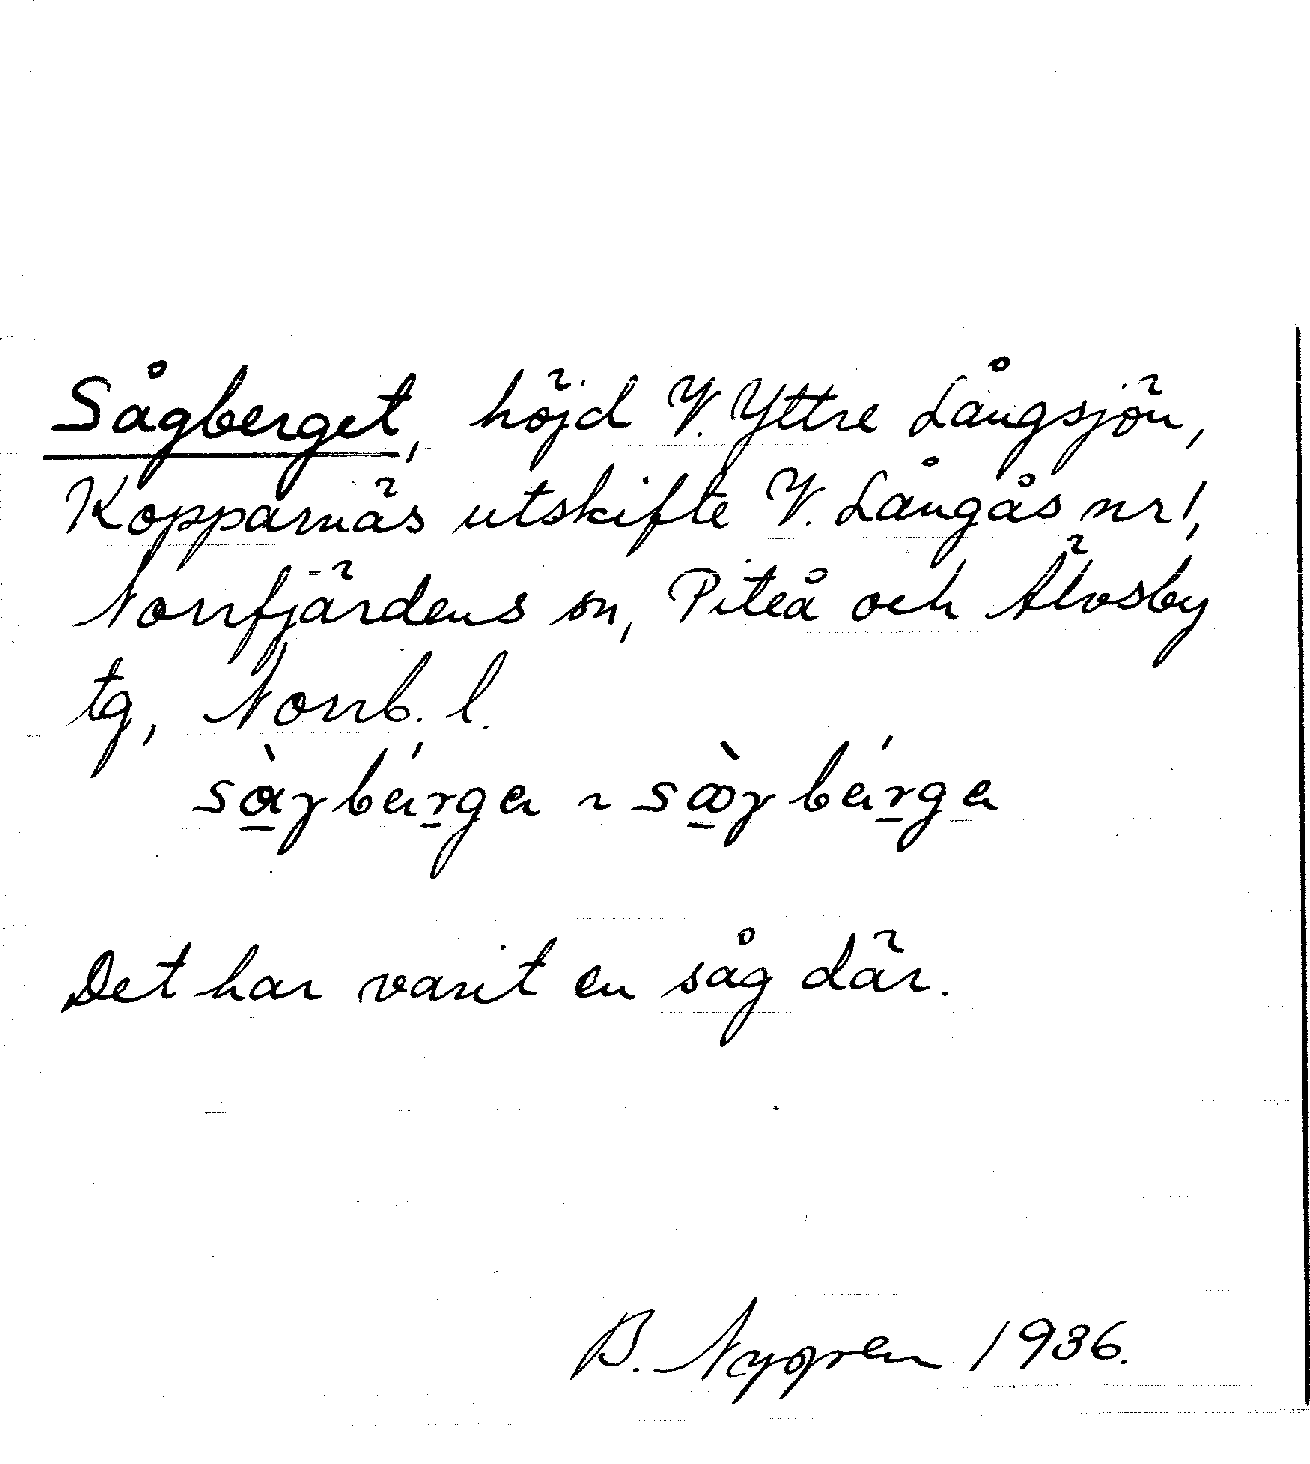 Sågberget, höjd V. Yttre Långsjön,
Kopparnäs utskifte V. Långås nr 1,
Norrfjärdens sn, Piteå och Älvsby
tg, Norrb. l.
Det har varit en såg där.
B. Nygren 1936.